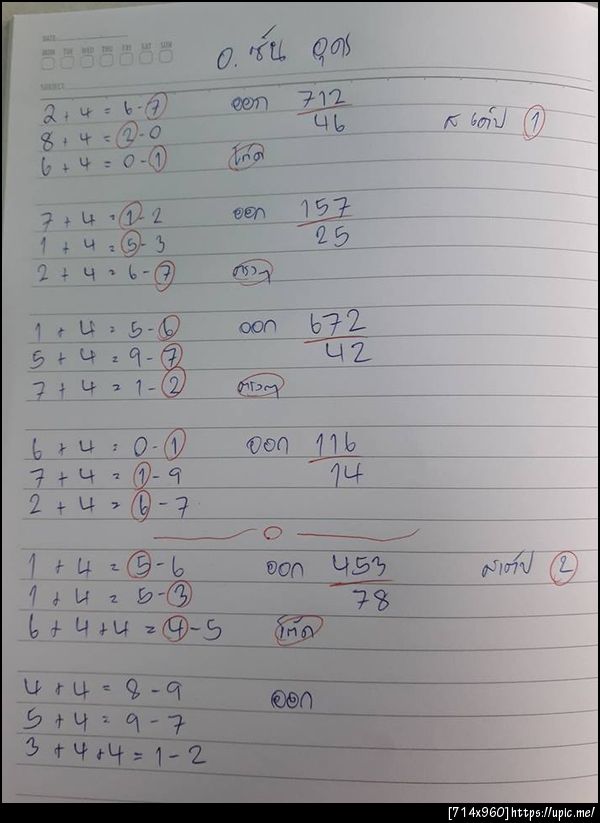 DATE
MON TUE WED THU FRI SAT SUN
SUBJECT
อ. ซัน อุดร
2 + 4 = 6 - 7 ออก 712
8 + 4 = 2 - 0 46 สเต๊ป 1
6 + 4 = 0 - 1 โต๊ด
7 + 4 = 1 - 2 ออก 157
1 + 4 = 5 - 3 25
2 + 4 = 6 - 7 ตรงๆ
1 + 4 = 5 - 6 ออก 672
5 + 4 = 9 - 7 42
7 + 4 = 1 - 2 ตรงๆ
6 + 4 = 0 - 1 ออก 116
7 + 4 = 1 - 9 14
2 + 4 = 6 - 7
1 + 4 = 5 - 6 ออก 453 สเต๊ป 2
1 + 4 = 5 - 3 78
6 + 4 + 4 = 4 - 5 โต๊ด
4 + 4 = 8 - 9 ออก
5 + 4 = 9 - 7
3 + 4 + 4 = 1 - 2
[714x960]https://upic.me/